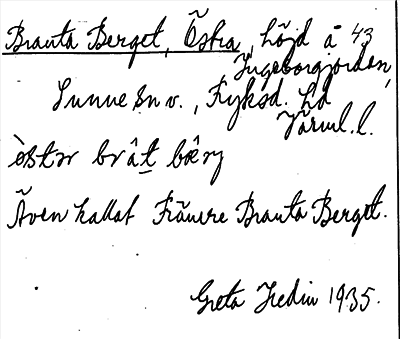 Branta Berget, Östra, höjd å 43
Ingeborgjorden,
Sunne sn v., Fryksd. hd
Värml. l.
östr brât bærj
Även kallat Främre Branta Berget.
Greta Hedin 1935.